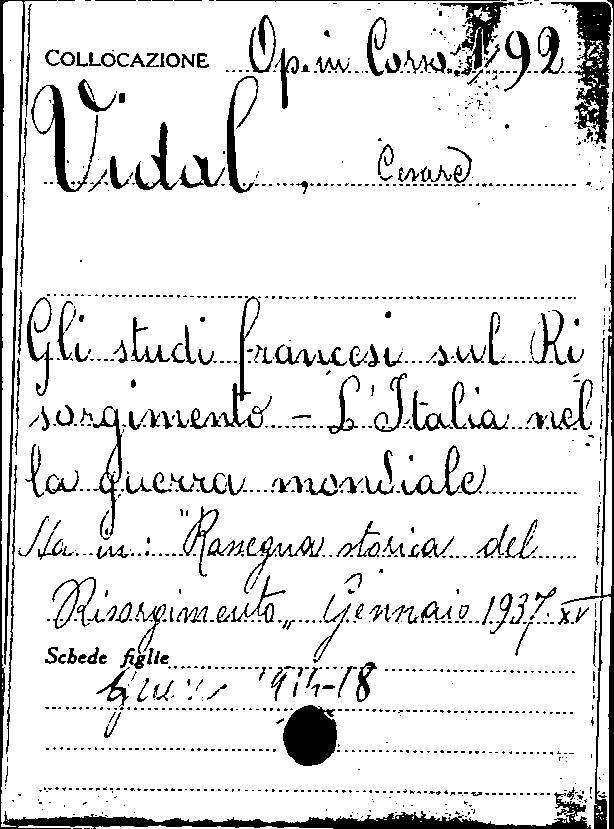 COLLOCAZIONE Op. in Corso. 1 92
Vidal, Cesare
Gli studi francesi sul Ri
sorgimento - L'Italia nel
la guerra mondiale
Sta in: "Rassegna storica del
Risorgimento„ Gennaio 1937. XV
Schede figlie
1914-18